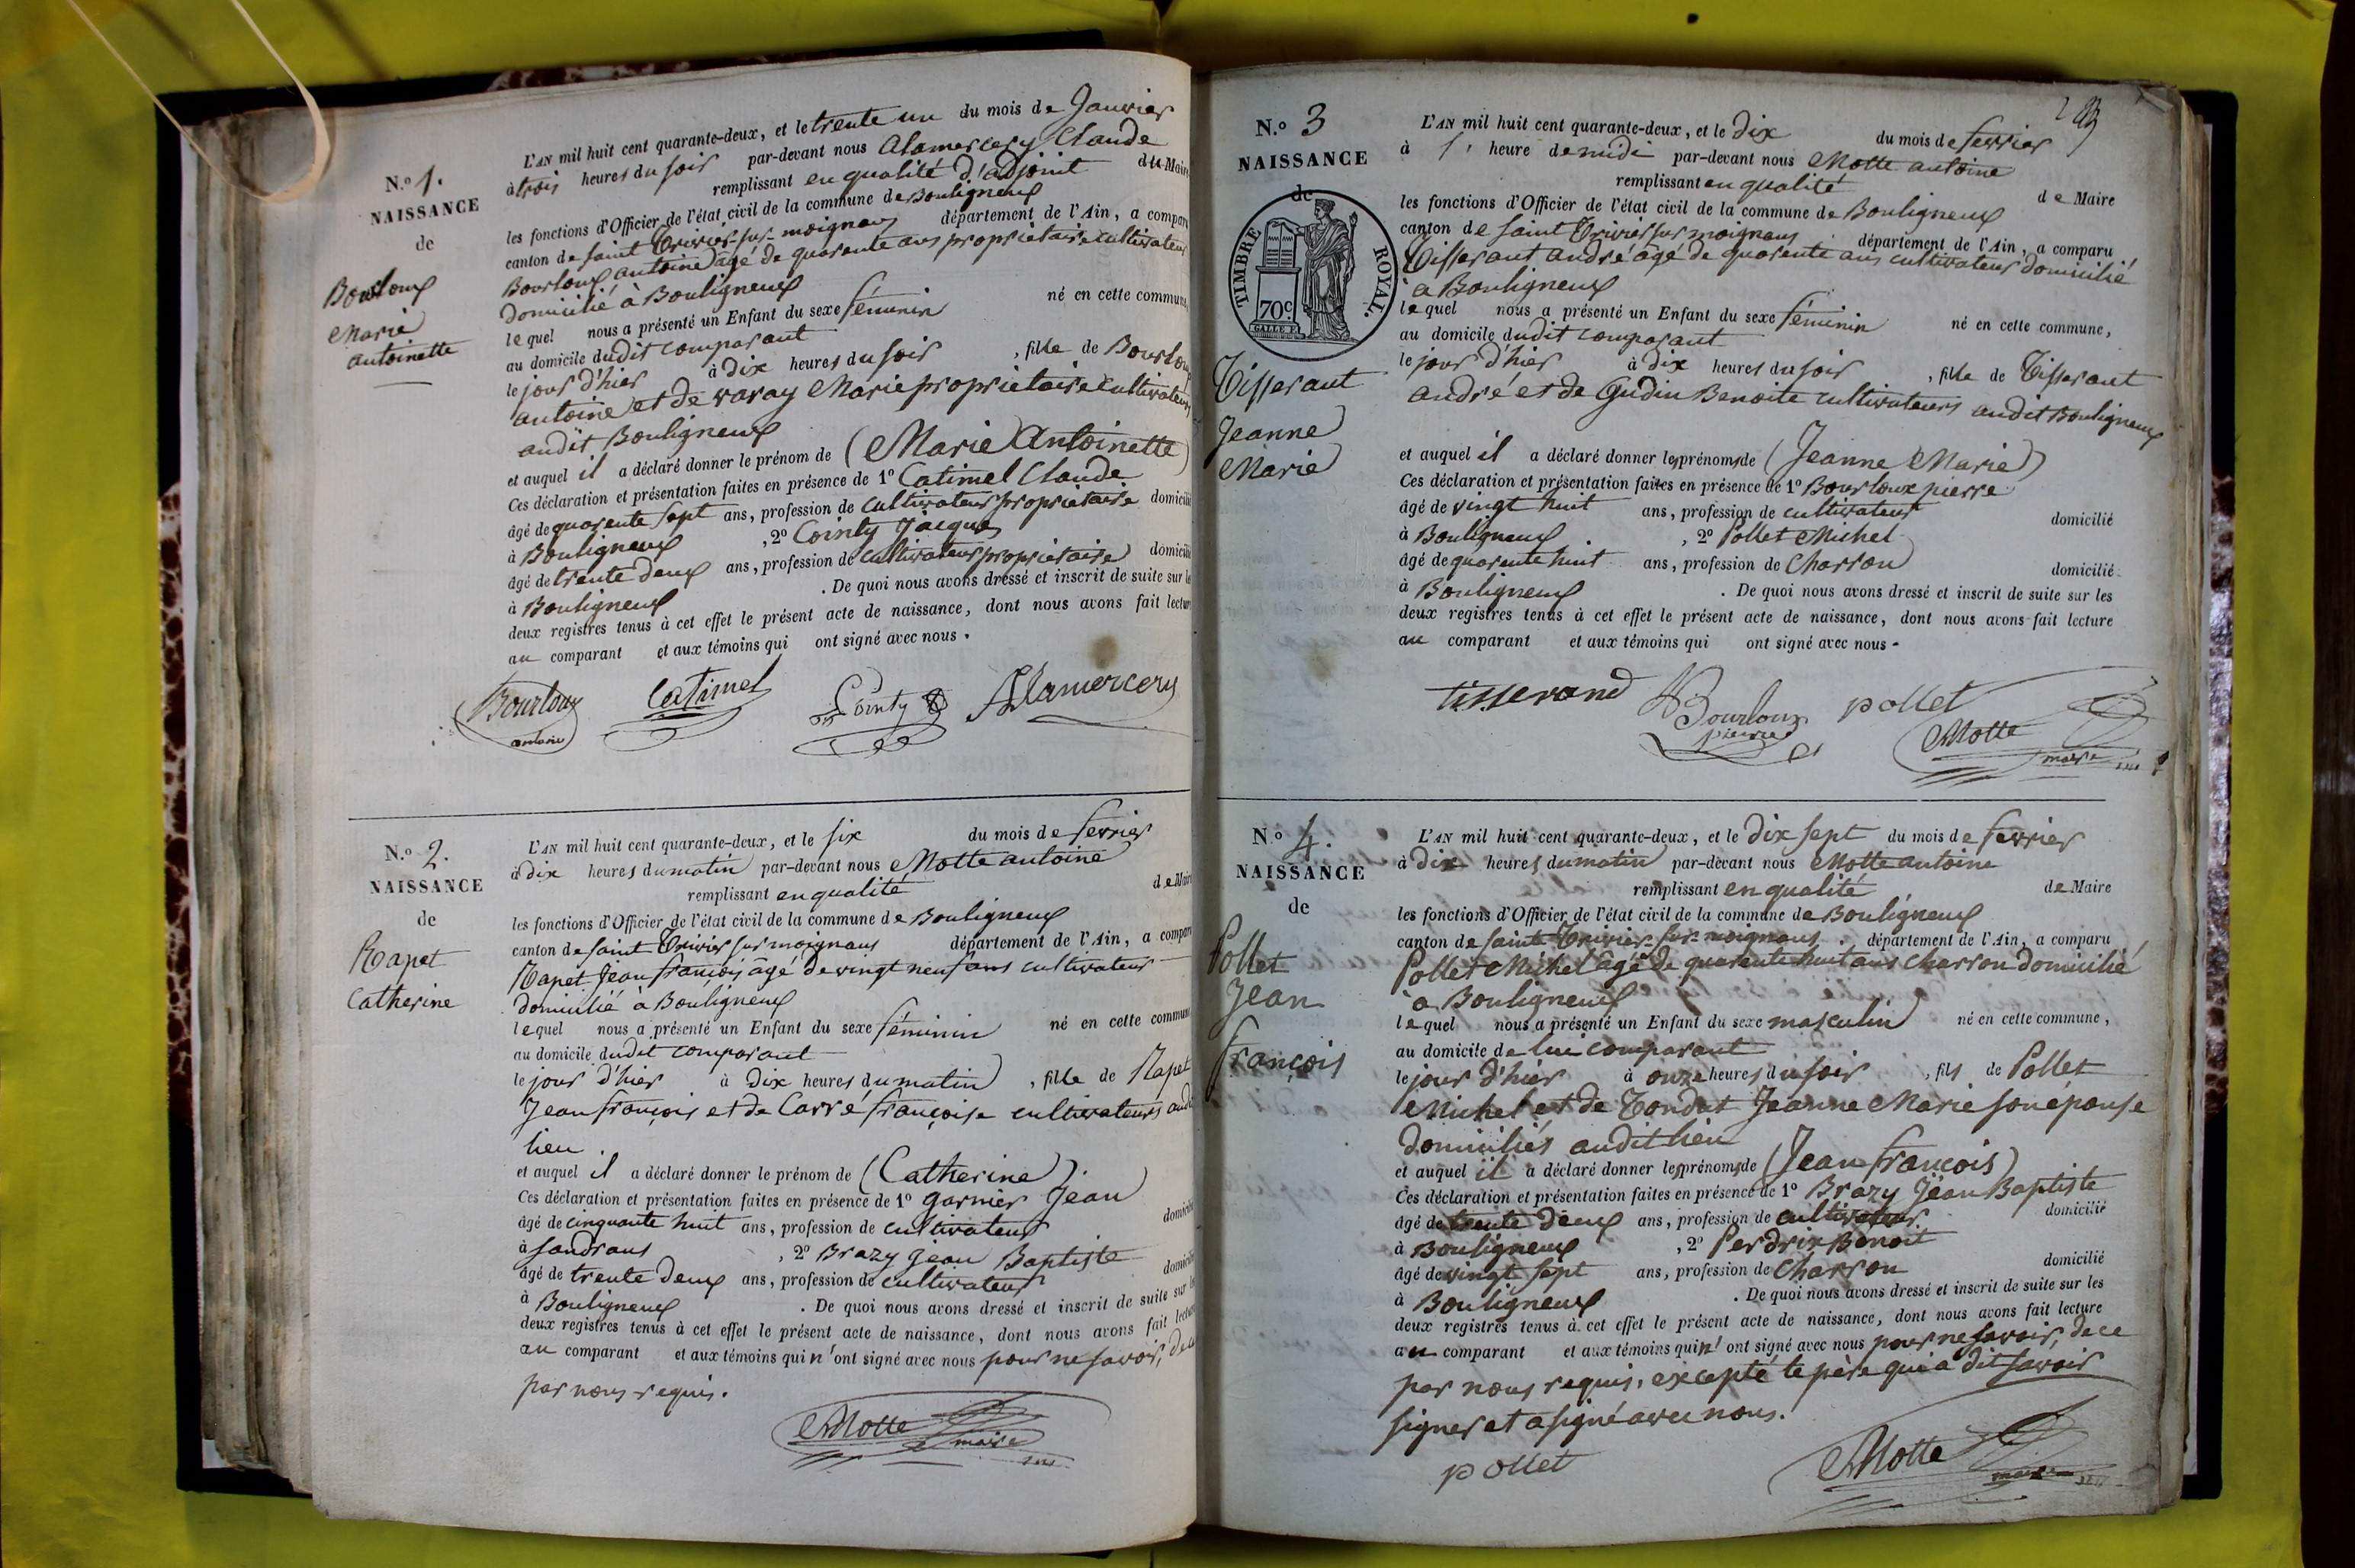 N.º 1.
NAISSANCE
de
Bourloux
Marie
antoinette
L'AN mil huit cent quarante-deux, et le trente un du mois de Janvier
à trois heures du soir par-devant nous Alamercery Claude
remplissant en qualité d'adjoint du Maire
les fonctions d'Officier de l'état civil de la commune de Bouligneux
canton de saint Trivier-sur-moignans département de l'Ain, a comparu
Bourloux antoine âgé de quarante ans propriétaire cultivateur
domicilié à Bouligneux
lequel nous a présenté un Enfant du sexe féminin né en cette commune,
au domicile dudit comparant
le jour d'hier à dix heures du soir, fille de Bourloux
antoine et de varay Marie propriétaire cultivateurs
audit Bouligneux
et auquel il a déclaré donner le prénom de (Marie Antoinette)
Ces déclaration et présentation faites en présence de 1º Catimel Claude
âgé de quarente sept ans, profession de cultivateur propriétaire domicilié
à Bouligneux, 2º Cointy Jacques
âgé de trente deux ans, profession de cultivateur propriétaire domicilié
à Bouligneux. De quoi nous avons dressé et inscrit de suite sur les
deux registres tenus à cet effet le présent acte de naissance, dont nous avons fait lecture
au comparant et aux témoins qui ont signé avec nous.
Bourloux Catimel Cointy Alamercery
antoine
N.º 2.
NAISSANCE
de
Rapet
Catherine
L'AN mil huit cent quarante-deux, et le six du mois de fevrier
à dix heures du matin par-devant nous Motte antoine
remplissant en qualité de Maire
les fonctions d'Officier de l'état civil de la commune de Bouligneux
canton de saint Trivier sur moignans département de l'Ain, a comparu
Rapet Jean françois âgé de vingt neuf ans cultivateur
domicilié à Bouligneux
lequel nous a présenté un Enfant du sexe féminin né en cette commune
au domicile dudit comparant
le jour d'hier à dix heures du matin, fille de Rapet
Jean françois et de Carré françoise cultivateurs audit
lieu.
et auquel il a déclaré donner le prénom de (Catherine).
Ces déclaration et présentation faites en présence de 1º garnier Jean
âgé de cinquante huit ans, profession de cultivateur domicilié
à sandrans, 2º Brazy Jean Baptiste
âgé de trente deux ans, profession de cultivateur domicilié
à Bouligneux. De quoi nous avons dressé et inscrit de suite sur les
deux registres tenus à cet effet le présent acte de naissance, dont nous avons fait lecture
au comparant et aux témoins qui n'ont signé avec nous pour ne savoir, de ce
par nous requis.
Motte
maire
N.º 3
NAISSANCE
de
TIMBRE ROYAL.
70c
Tisserant
Jeanne
Marie
L'AN mil huit cent quarante-deux, et le dix du mois de fevrier
à 1' heure de midi par-devant nous Motte antoine
remplissant en qualité de Maire
les fonctions d'Officier de l'état civil de la commune de Bouligneux
canton de saint Trivier sur moignans département de l'Ain, a comparu
Tisserant andré âgé de quarente ans cultivateur domicilié
à Bouligneux
lequel nous a présenté un Enfant du sexe féminin né en cette commune,
au domicile dudit comparant
le jour d'hier à dix heures du soir, fille de Tisserant
andré et de Gudin Benoite cultivateurs audit Bouligneux
et auquel il a déclaré donner les prénoms de (Jeanne Marie)
Ces déclaration et présentation faites en présence de 1º Bourloux pierre
âgé de vingt huit ans, profession de cultivateur domicilié
à Bouligneux, 2º Pollet Michel
âgé de quarente huit ans, profession de Charron domicilié
à Bouligneux. De quoi nous avons dressé et inscrit de suite sur les
deux registres tenus à cet effet le présent acte de naissance, dont nous avons fait lecture
au comparant et aux témoins qui ont signé avec nous.
tisserand Bourloux pollet
pierre Motte
maire
N.º 4.
NAISSANCE
de
Pollet
Jean
françois
L'AN mil huit cent quarante-deux, et le dix sept du mois de fevrier
à dix heures du matin par-devant nous Motte antoine
remplissant en qualité de Maire
les fonctions d'Officier de l'état civil de la commune de Bouligneux
canton de sainte Trivier-sur-moignans. département de l'Ain, a comparu
Pollet Michel âgé de quarente huit ans charron domicilié
à Bouligneux
lequel nous a présenté un Enfant du sexe masculin né en cette commune,
au domicile de lui comparant
le jour d'hier à onze heures du soir, fils de Pollet
Michel et de Tondut Jeanne Marie son épouse
domiciliés audit lieu
et auquel il a déclaré donner les prénoms de (Jean françois)
Ces déclaration et présentation faites en présence de 1º Brazy Jean Baptiste
âgé de trente deux ans, profession de cultivateur domicilié
à Bouligneux, 2º Perdrix Benoit
âgé de vingt sept ans, profession de Charron domicilié
à Bouligneux. De quoi nous avons dressé et inscrit de suite sur les
deux registres tenus à cet effet le présent acte de naissance, dont nous avons fait lecture
au comparant et aux témoins qui n'ont signé avec nous pour ne savoir, de ce
par nous requis, excepté le père qui a dit savoir
signer et a signé avec nous.
pollet Motte
maire